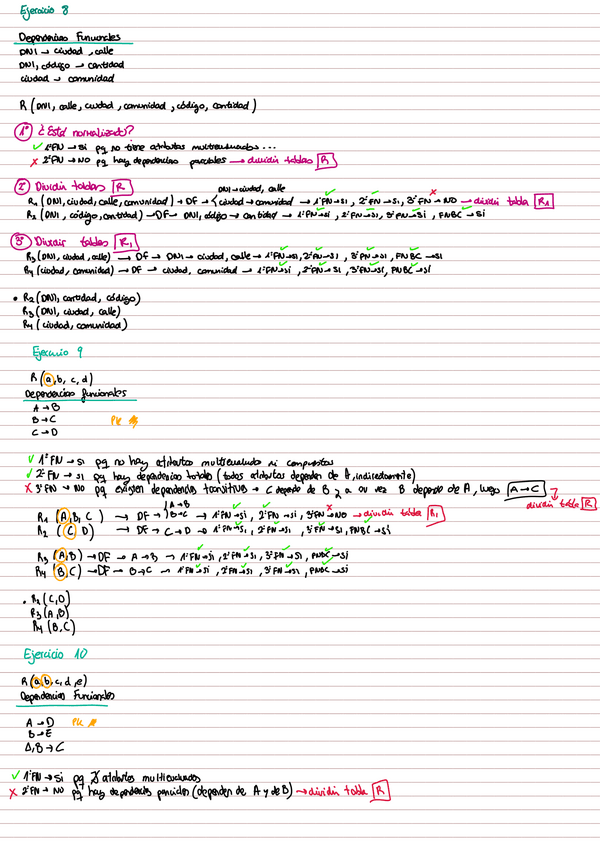 Ejercicio 8
Dependencias Funcionales
DNI → ciudad, calle
DNI, código → cantidad
ciudad → comunidad
R (DNI, calle, ciudad, comunidad, código, cantidad)
1º ¿Está normalizado?
✓ 1ªFN → Sí pq no tiene atributos multivaluados...
✗ 2ªFN → NO pq hay dependencias parciales → dividir tablas R
2º Dividir tablas R
DNI → ciudad, calle
R1 (DNI, ciudad, calle, comunidad) → DF → { ciudad → comunidad → 1ªFN → Sí, 2ªFN → Sí, 3ªFN → NO → dividir tabla R1
R2 (DNI, código, cantidad) → DF → DNI, código → cantidad → 1ªFN → sí, 2ªFN → sí, 3ªFN → Sí, FNBC → Sí
3º Dividir tablas R1
R3 (DNI, ciudad, calle) → DF → DNI → ciudad, calle → 1ªFN → Sí, 2ªFN → Sí, 3ªFN → Sí, FNBC → Sí
R4 (ciudad, comunidad) → DF → ciudad, comunidad → 1ªFN → Sí, 2ªFN → Sí, 3ªFN → Sí, FNBC → Sí
• R2 (DNI, cantidad, código)
R3 (DNI, ciudad, calle)
R4 (ciudad, comunidad)
Ejercicio 9
R (a, b, c, d)
Dependencias funcionales
A → B
B → C PK
C → D
✓ 1ªFN → Sí pq no hay atributos multivaluados ni compuestos
✓ 2ªFN → Sí pq hay dependencias totales (todos atributos dependen de A, indirectamente)
✗ 3ªFN → NO pq existen dependencias transitivas → C depende de B y a su vez B depende de A, luego A → C
dividir tabla R
A → B
R1 (A, B, C) → DF → { B → C → 1ªFN → Sí, 2ªFN → Sí, 3ªFN → NO → dividir tabla R1
R2 (C, D) → DF → C → D → 1ªFN → Sí, 2ªFN → Sí, 3ªFN → Sí, FNBC → Sí
R3 (A, B) → DF → A → B → 1ªFN → Sí, 2ªFN → Sí, 3ªFN → Sí, FNBC → Sí
R4 (B, C) → DF → B → C → 1ªFN → Sí, 2ªFN → Sí, 3ªFN → Sí, FNBC → Sí
• R2 (C, D)
R3 (A, B)
R4 (B, C)
Ejercicio 10
R (a, b, c, d, e)
Dependencias Funcionales
A → D PK
B → E
A, B → C
✓ 1ªFN → Sí pq ∄ atributos multivaluados
✗ 2ªFN → NO pq hay dependencias parciales (dependen de A y de B) → dividir tabla R